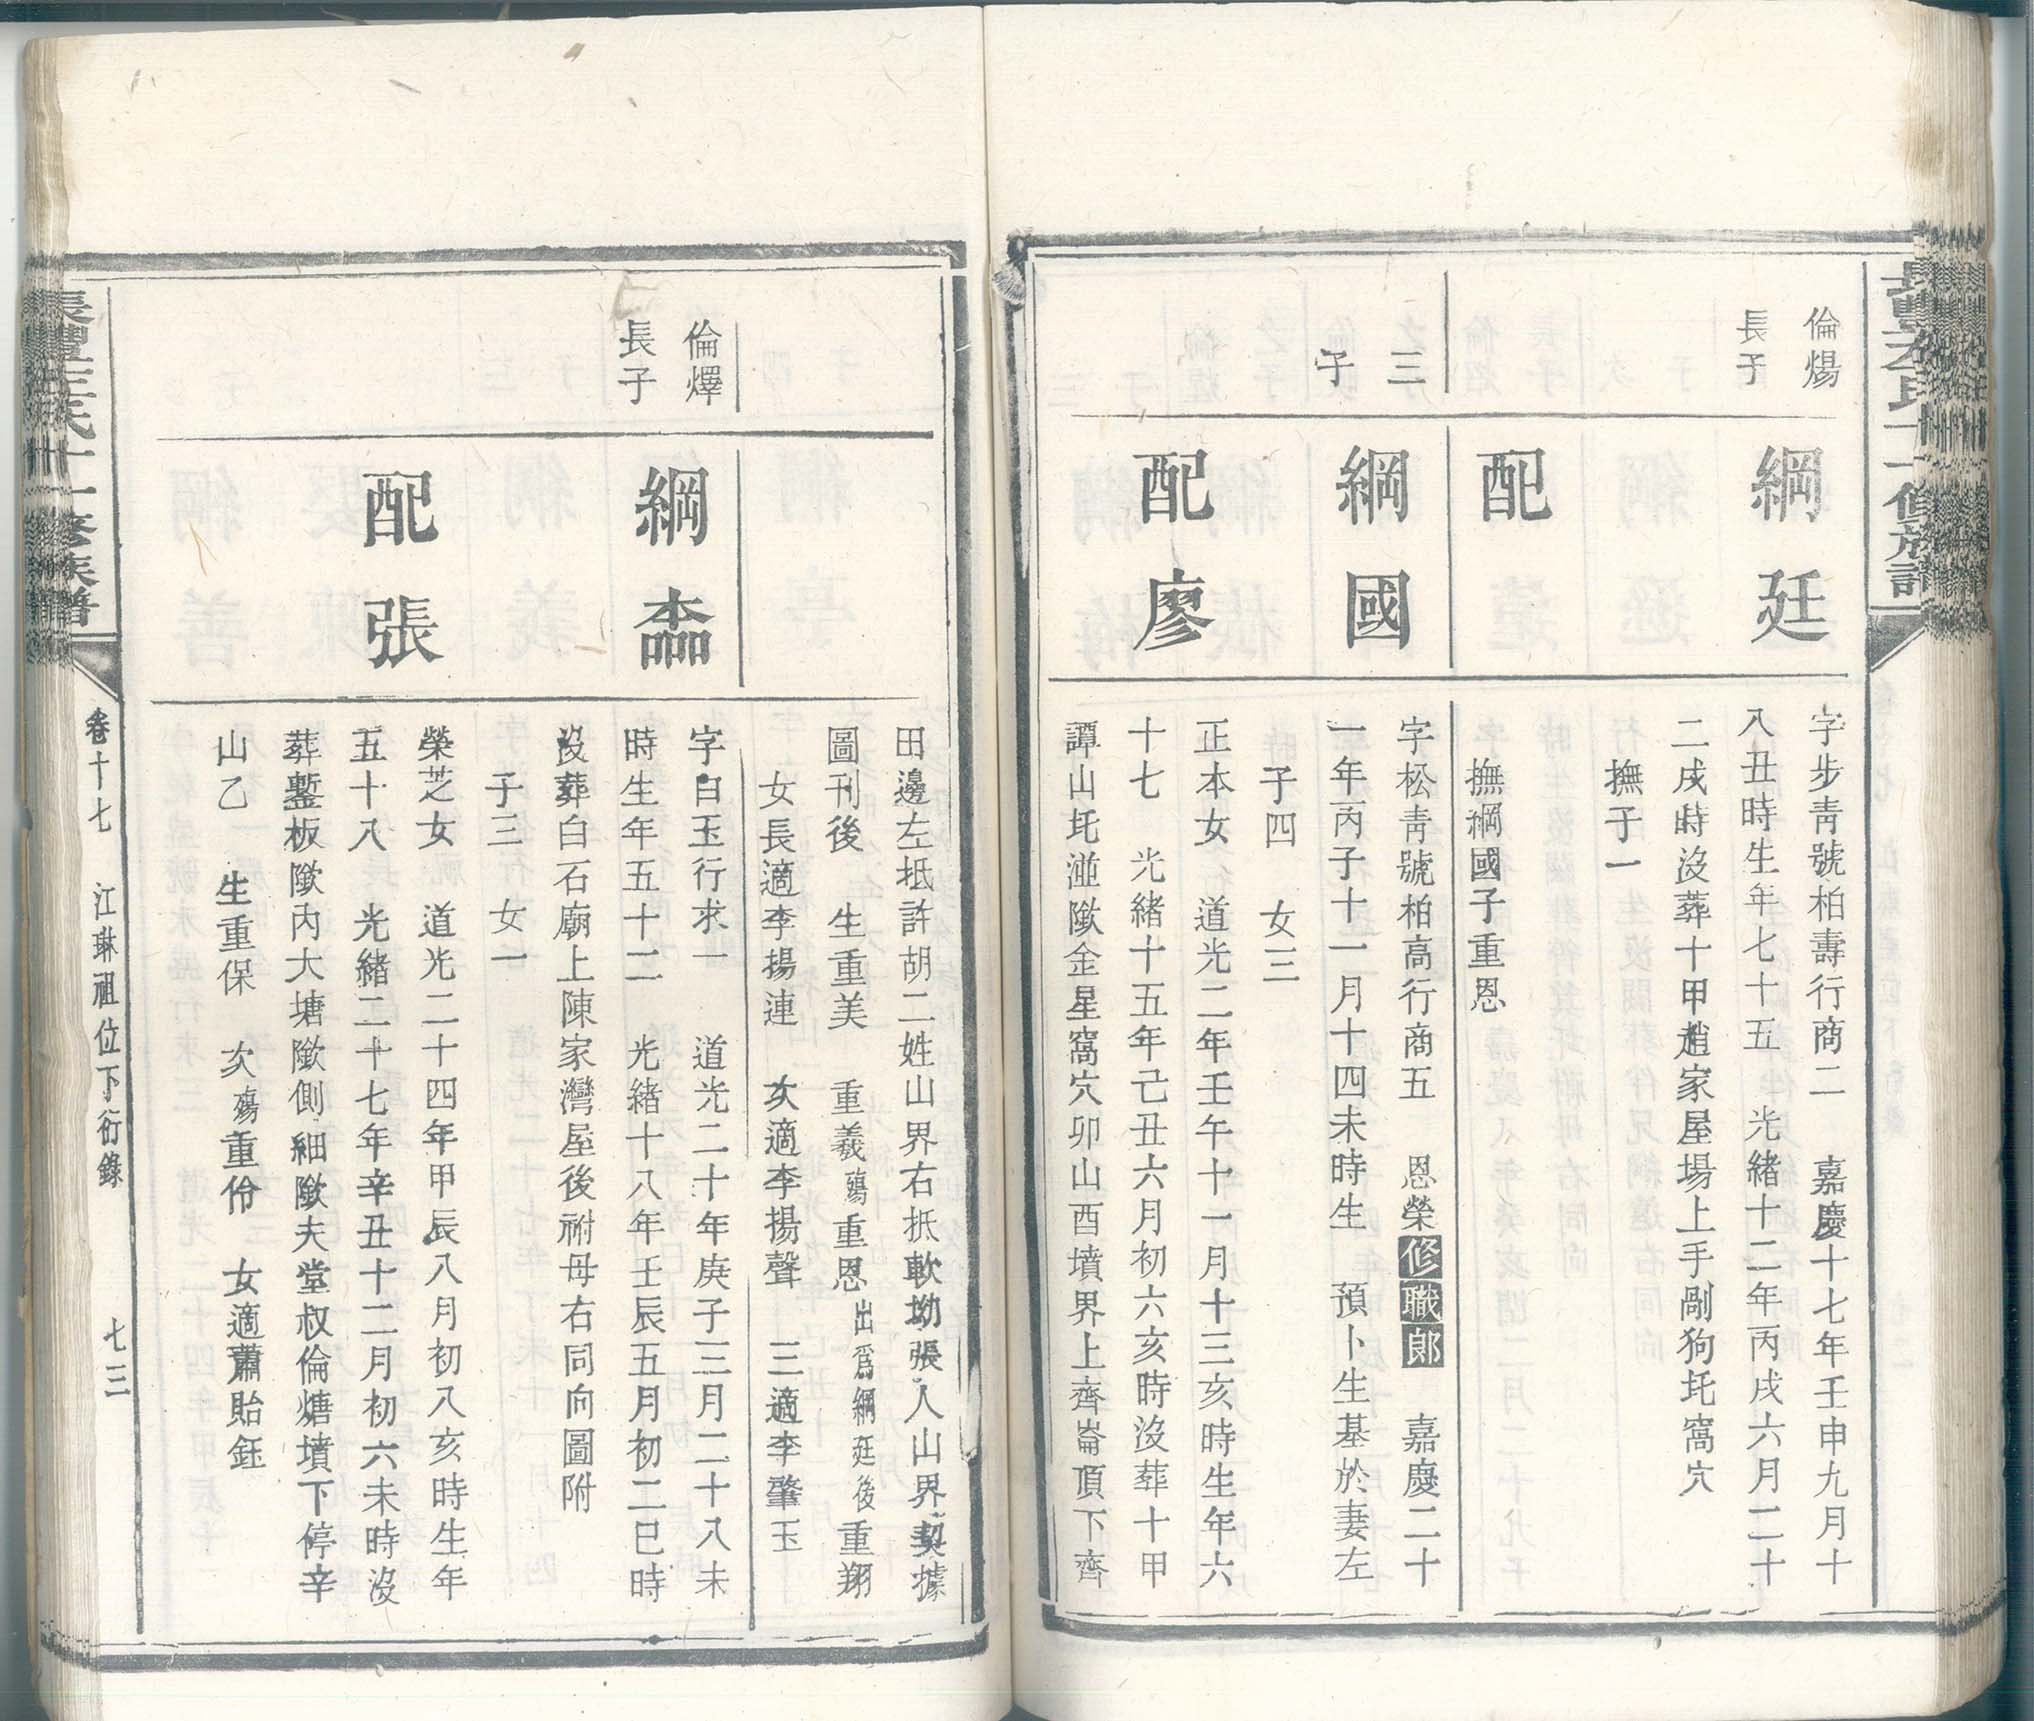 倫煬
長子
綱廷
字步靑號柏壽行商二 嘉慶十七年壬申九月十
八丑時生年七十五 光緒十二年丙戌六月二十
二戌時沒葬十甲趙家屋場上手剛狗坨窩穴
撫子一
配
撫綱國子重恩
三
子
綱國
字松靑號柏高行商五 恩榮修職郎 嘉慶二十
一年丙子十一月十四未時生 預卜生基於妻左
子四 女三
配廖
正本女 道光二年壬午十一月十三亥時生年六
十七 光緒十五年己丑六月初六亥時沒葬十甲
譚山坨湴墩金星窩穴卯山酉墳界上齊崙頂下齊
田邊左抵許胡二姓山界右抵軟坳張人山界契據
圖刊後 生重美 重義殤重恩出爲綱廷後重翔
女長適李揚連 次適李揚聲 三適李肇玉
倫燡
長子
綱
字白玉行求一 道光二十年庚子三月二十八未
時生年五十二 光緒十八年壬辰五月初二巳時
沒葬白石廟上陳家灣屋後祔母右同向圖附
子三 女一
配張
榮芝女 道光二十四年甲辰八月初八亥時生年
五十八 光緒二十七年辛丑十二月初六未時沒
葬鏨板墩內大塘墩側細墩夫堂叔倫煻墳下停辛
山乙 生重保 次殤重伶 女適蕭貽鈺
卷十七 江琳祖位下衍錄 七三